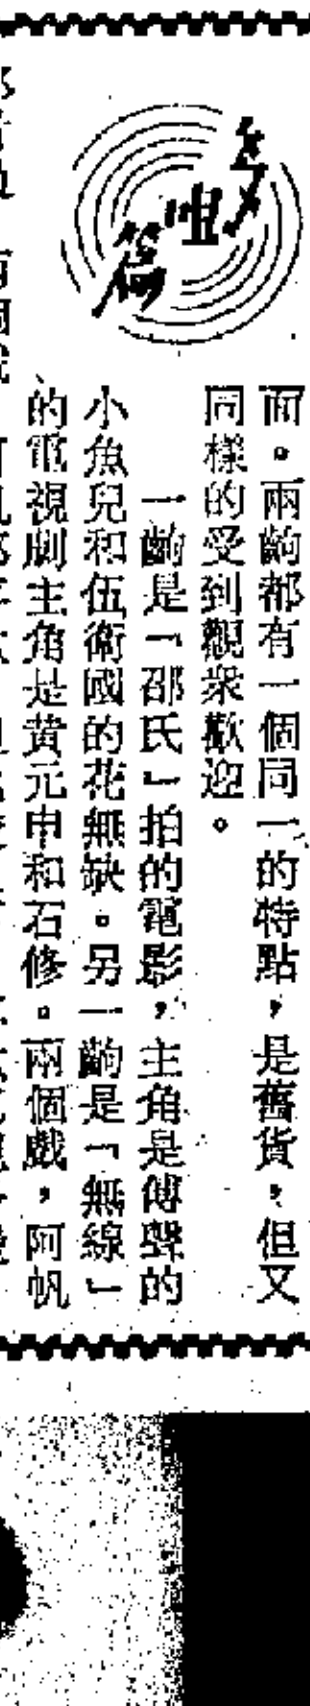 面。兩齣都有一個同一的特點，是舊貨，但又
同樣的受到觀衆歡迎。
一齣是「邵氏」拍的電影，主角是傅聲的
小魚兒和伍衛國的花無缺。另一齣是「無線」
的電視劇主角是黄元申和石修。兩個戲，阿帆